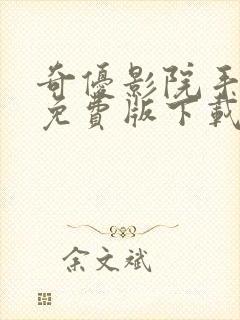 奇優影院手
免費版下載
余文斌